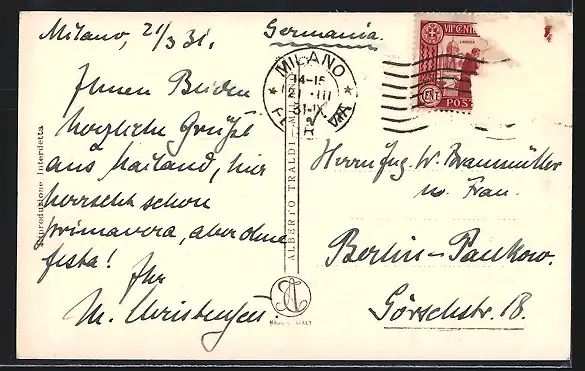 Milano, 21/3 31.
Germania.
Ihnen Beiden
herzliche Grüße
aus Mailand, hier
herrscht schon
primavera, aber ohne
festa!
Ihr
M. Christensen.
Riproduzione Interdetta
ALBERTO TRALDI - MILANO
MADE IN ITALY
MILANO
14-15
21 III
31-IX
VII CENT
POS
Herrn Ing. W. Braumüller
u. Frau.
Berlin-Pankow.
Görschstr. 18.